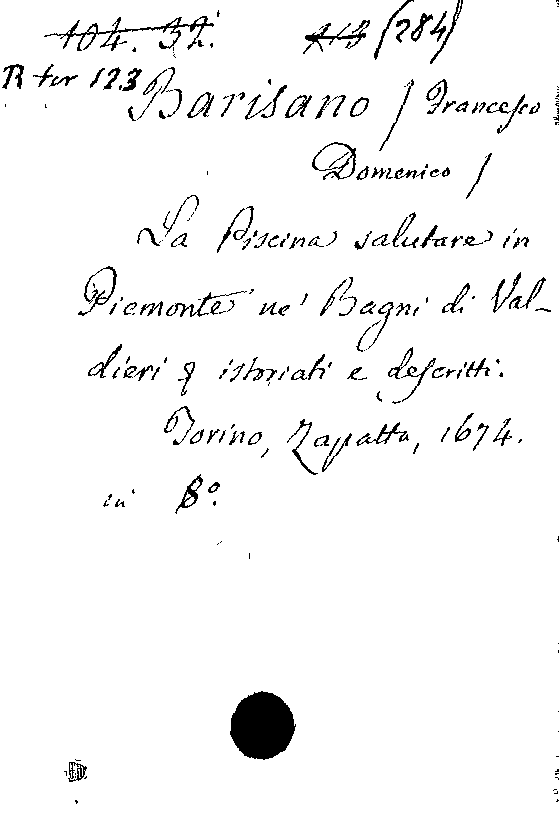 104. 32.
(284)
R ter 123
Barisano / Francesco
Domenico /
La Piscina salutare in
Piemonte ne' Bagni di Val-
dieri & istoriati e descritti.
Torino, Zapatta, 1674.
in 8º.